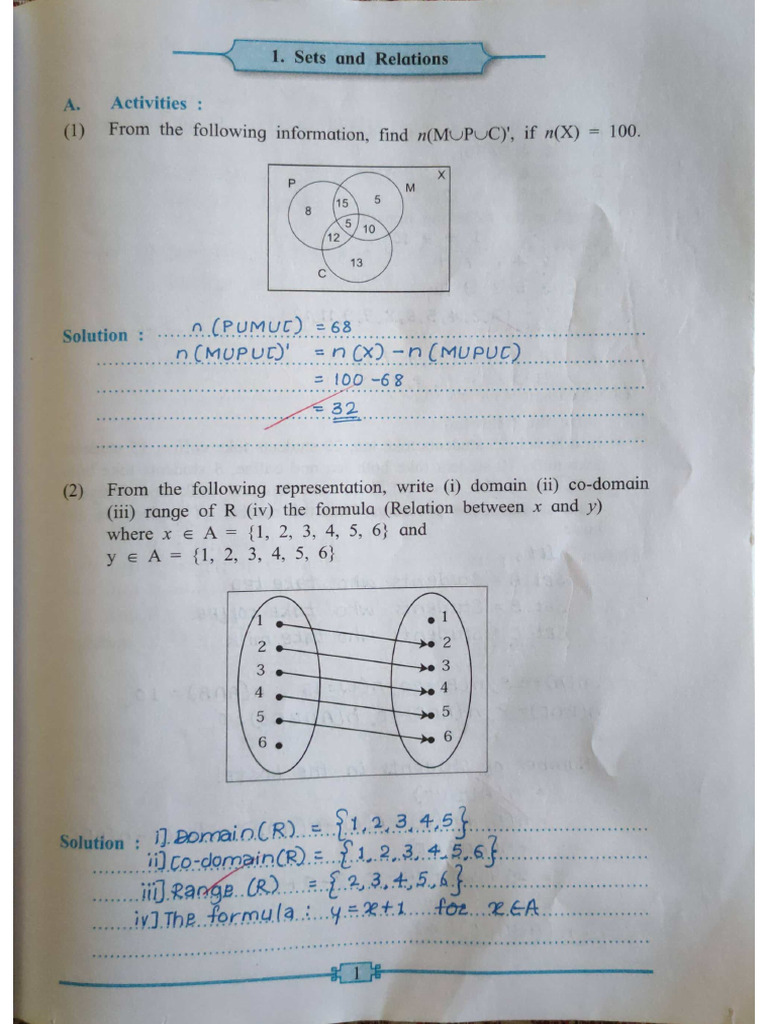 1. Sets and Relations
A. Activities :
(1) From the following information, find n(M∪P∪C)', if n(X) = 100.
X
P
M
8
15
5
5
10
12
13
C
Solution : n (PUMUC) = 68
n (MUPUC)' = n (X) - n (MUPUC)
= 100 -68
= 32
(2) From the following representation, write (i) domain (ii) co-domain
(iii) range of R (iv) the formula (Relation between x and y)
where x ∈ A = {1, 2, 3, 4, 5, 6} and
y ∈ A = {1, 2, 3, 4, 5, 6}
1 1
2 2
3 3
4 4
5 5
6 6
Solution : i] Domain(R) = {1, 2, 3, 4, 5}
ii] Co-domain(R) = {1, 2, 3, 4, 5, 6}
iii] Range (R) = {2, 3, 4, 5, 6}
iv] The formula : y = x+1 for x ∈ A
1